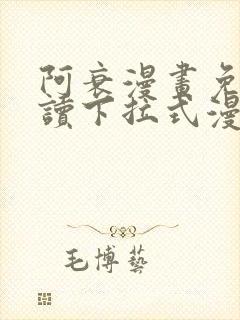 阿衰漫畫免
讀下拉式漫
毛博藝